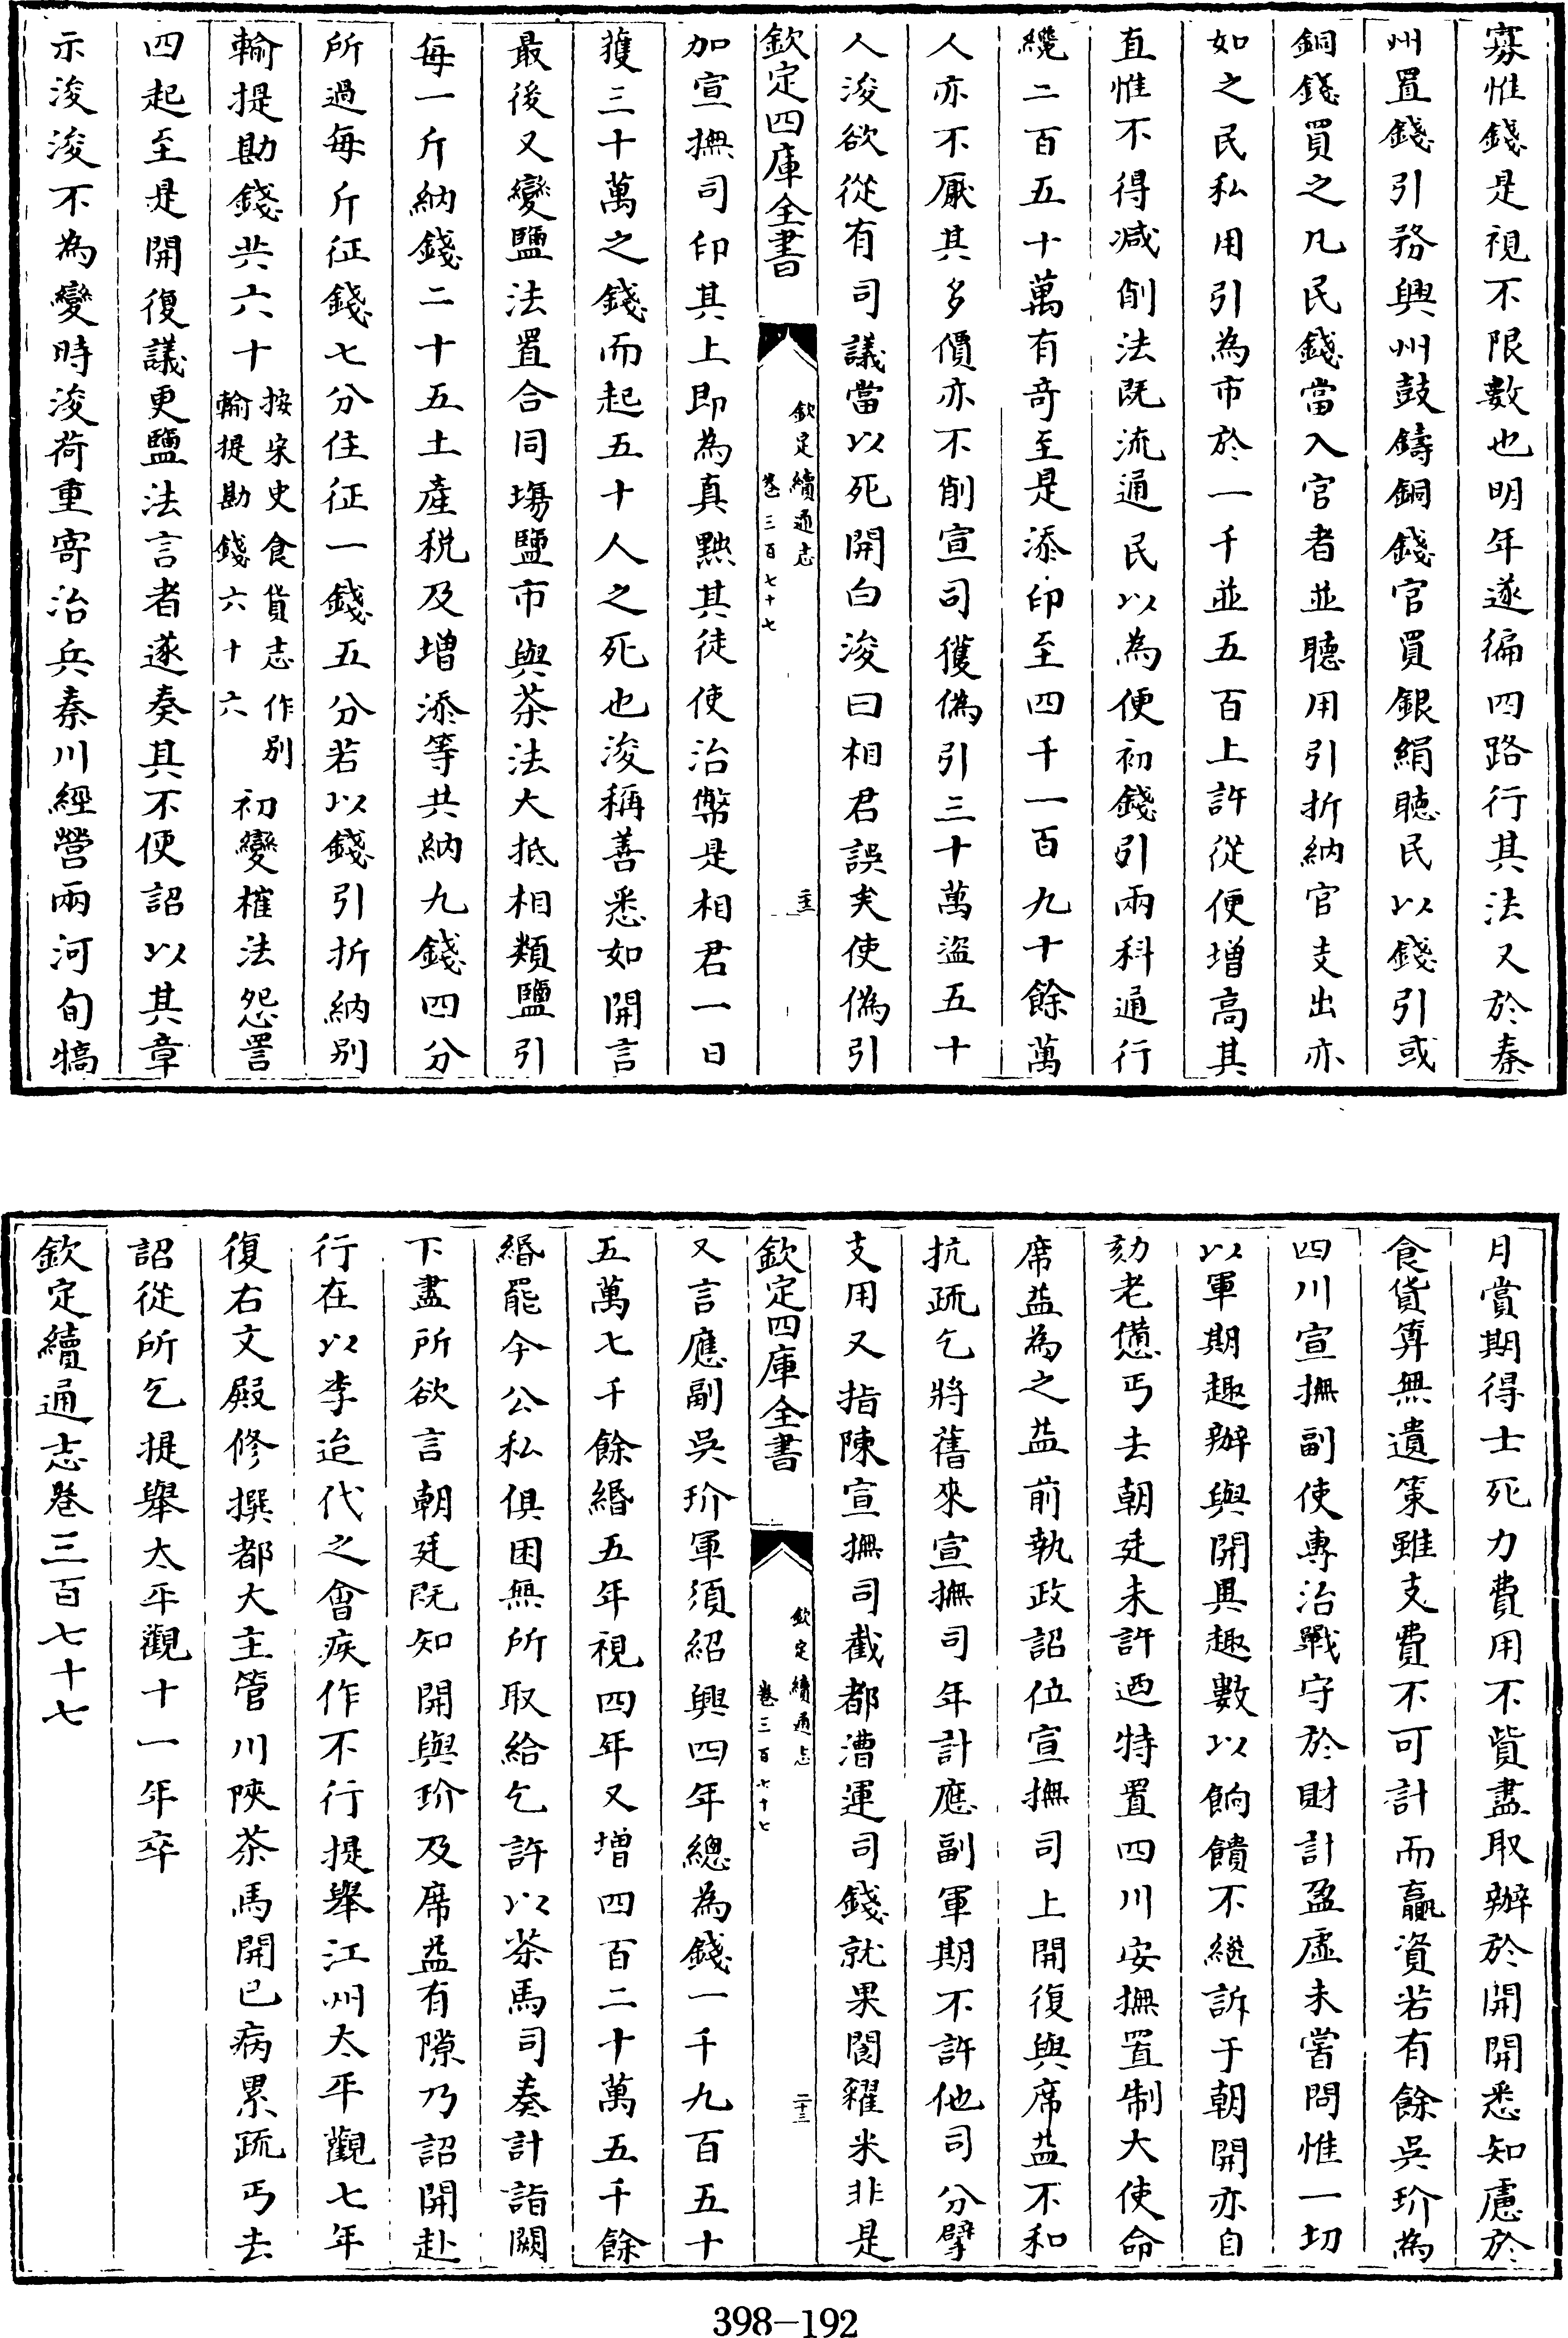 寡惟錢是視不限數也明年遂徧四路行其法又於秦
州置錢引務興州鼓鑄銅錢官買銀絹聽民以錢引或
銅錢買之凡民錢當入官者並聽用引折納官支出亦
如之民私用引為市於一千並五百上許從便增高其
直惟不得減削法既流通民以為便初錢引兩科通行
纔二百五十萬有奇至是添印至四千一百九十餘萬
人亦不厭其多價亦不削宣司獲偽引三十萬盜五十
人浚欲從有司議當以死開白浚曰相君誤矣使偽引
欽定四庫全書
欽定續通志
卷三百七十七
二十三
加宣撫司印其上即為真黥其徒使治幣是相君一日
獲三十萬之錢而起五十人之死也浚稱善悉如開言
最後又變鹽法置合同場鹽市與茶法大抵相類鹽引
每一斤納錢二十五土產稅及增添等共納九錢四分
所過每斤征錢七分住征一錢五分若以錢引折納別
輸提勘錢共六十按宋史食貨志作別輸提勘錢六十六初變榷法怨詈
四起至是開復議更鹽法言者遂奏其不便詔以其章
示浚浚不為變時浚荷重寄治兵秦川經營兩河旬犒
月賞期得士死力費用不貲盡取辦於開開悉知慮於
食貨筭無遺策雖支費不可計而贏資若有餘吳玠為
四川宣撫副使專治戰守於財計盈虛未嘗問惟一切
以軍期趣辦與開異趣數以餉饋不繼訴于朝開亦自
劾老憊丐去朝廷未許迺特置四川安撫置制大使命
席益為之益前執政詔位宣撫司上開復與席益不和
抗疏乞將舊來宣撫司年計應副軍期不許他司分擘
支用又指陳宣撫司截都漕運司錢就果閬糴米非是
欽定四庫全書
欽定續通志
卷三百七十七
二十三
又言應副吳玠軍須紹興四年總為錢一千九百五十
五萬七千餘緡五年視四年又增四百二十萬五千餘
緡罷今公私俱困無所取給乞許以茶馬司奏計詣闕
下盡所欲言朝廷既知開與玠及席益有隙乃詔開赴
行在以李迨代之會疾作不行提舉江州太平觀七年
復右文殿修撰都大主管川陝茶馬開已病累疏丐去
詔從所乞提舉太平觀十一年卒
欽定續通志卷三百七十七
398-192